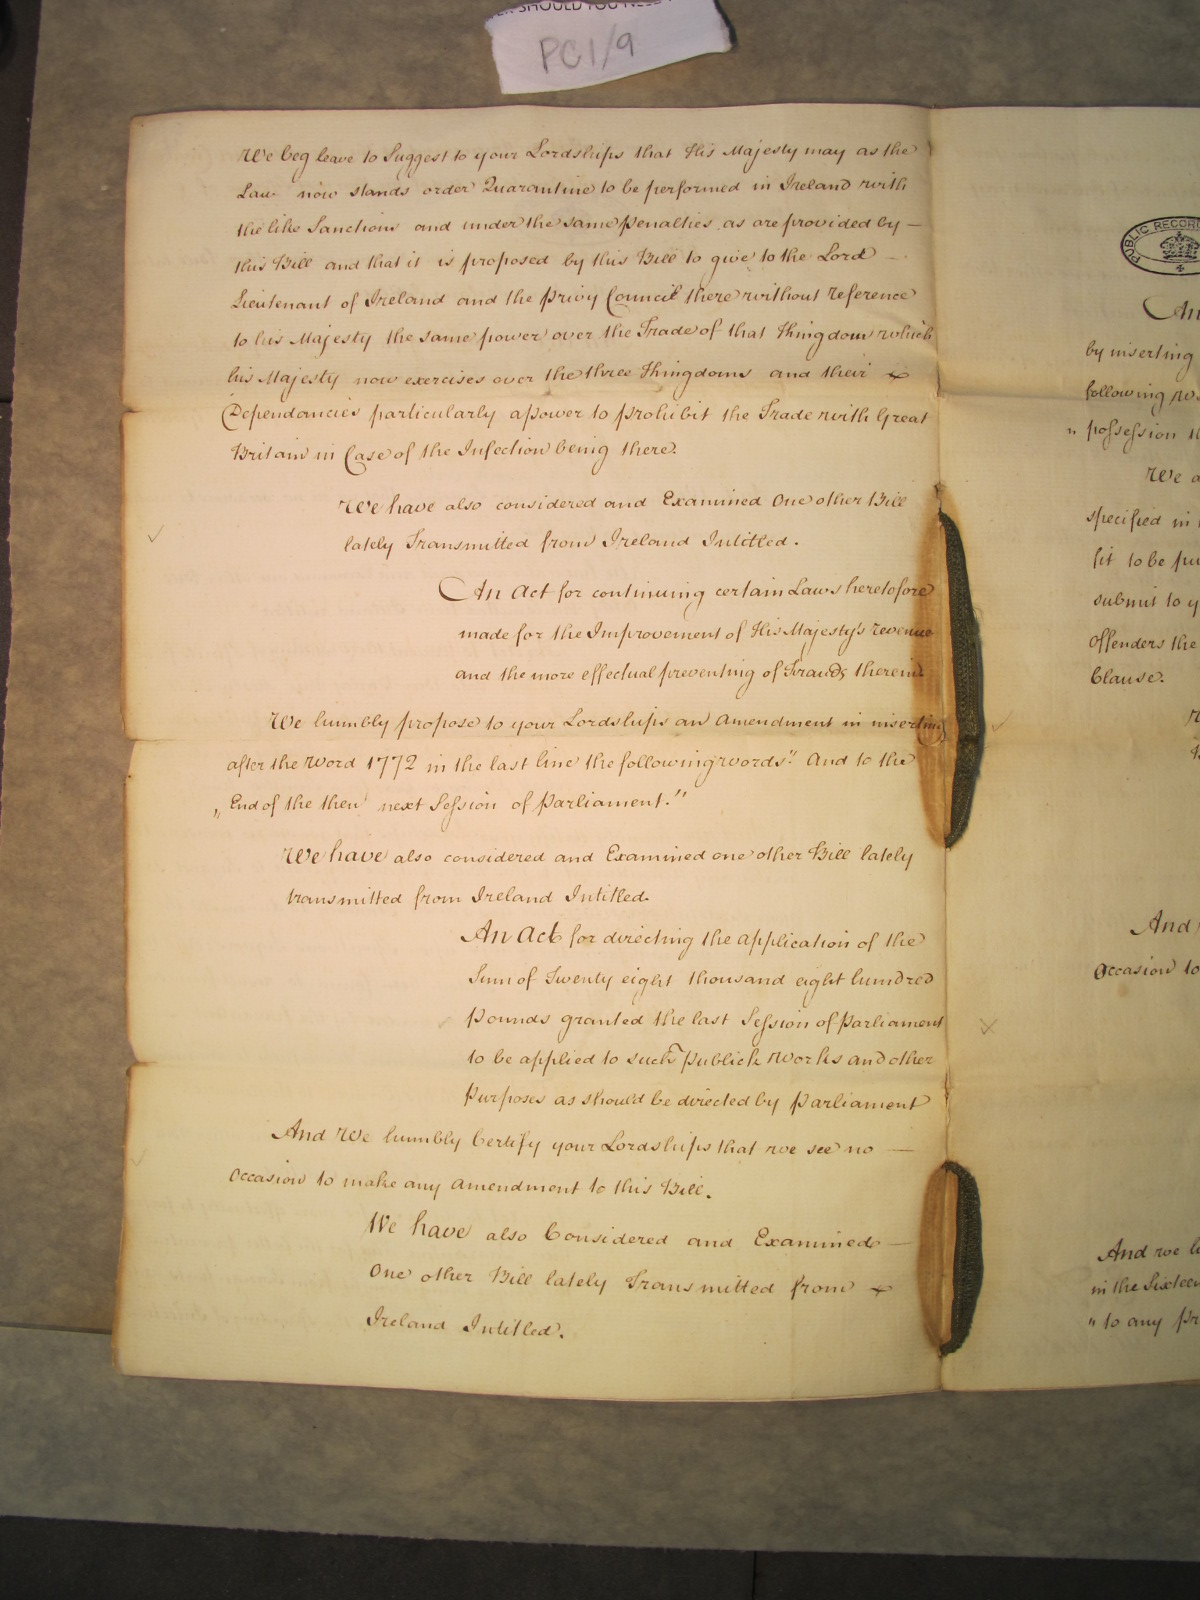 PC1/9
We beg leave to Suggest to your Lordships that His Majesty may as the
Law now stands order Quarantine to be performed in Ireland with
the like Sanctions and under the same penalties as are provided by —
this Bill and that it is proposed by this Bill to give to the Lord —
Lieutenant of Ireland and the Privy Council there without reference
to his Majesty the same power over the Trade of that Kingdom which
his Majesty now exercises over the three Kingdoms and their
Dependancies particularly a power to prohibit the Trade with Great
Britain in Case of the Infection being there.
We have also considered and Examined One other Bill
lately Transmitted from Ireland Intitled.
An Act for continuing certain Laws heretofore
made for the Improvement of His Majesty's revenue
and the more effectual preventing of Frauds therein.
We humbly propose to your Lordships an Amendment in inserting
after the Word 1772 in the last line the following words " And to the
" End of the then next Session of Parliament."
We have also considered and Examined one other Bill lately
transmitted from Ireland Intitled.
An Act for directing the application of the
Sum of Twenty eight thousand eight hundred
Pounds granted the last Session of Parliament
to be applied to such Publick Works and other
Purposes as should be directed by Parliament
And We humbly Certify your Lordships that we see no —
Occasion to make any Amendment to this Bill.
We have also Considered and Examined —
One other Bill lately Transmitted from
Ireland Intitled.
PUBLIC RECORD
An
by inserting
following
" possession
We
specified in
fit to be
submit to
Offenders the
Clause.
And
Occasion to
And we
in the
" to any